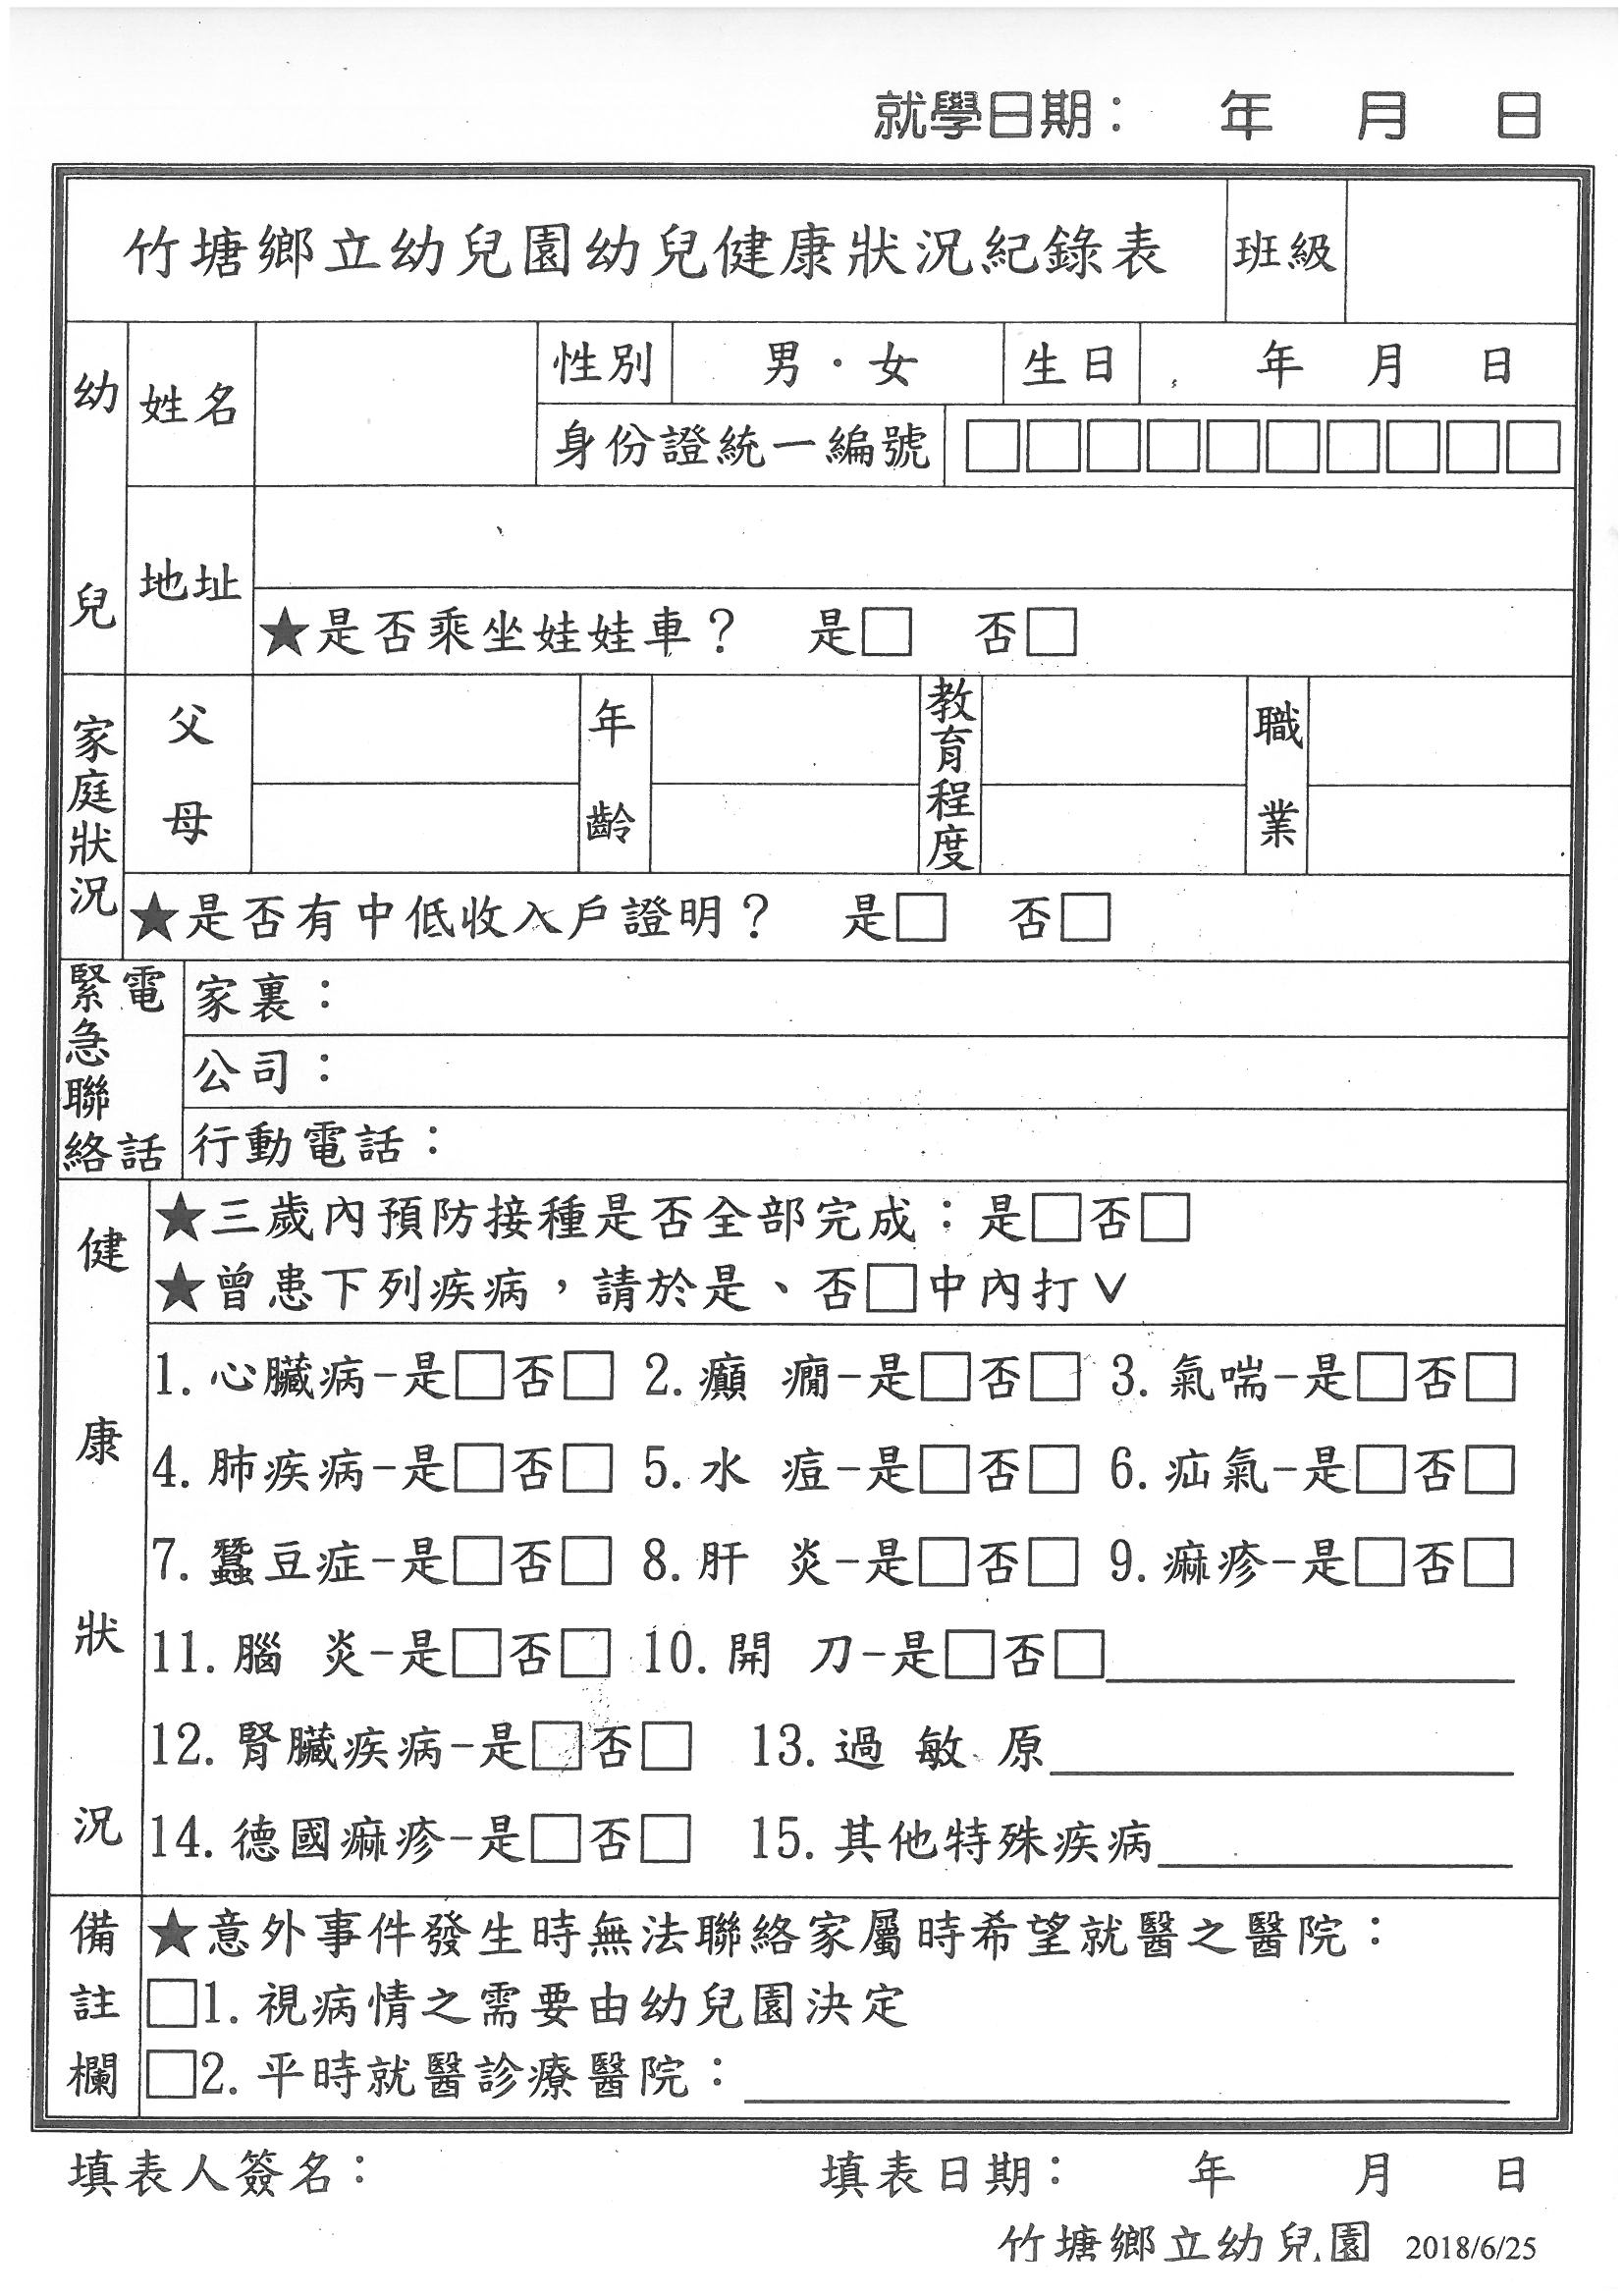 就學日期： 年 月 日
竹塘鄉立幼兒園幼兒健康狀況紀錄表 班級
幼兒 姓名 性別 男·女 生日 年 月 日
身份證統一編號 □□□□□□□□□□
地址
★是否乘坐娃娃車？ 是□ 否□
家庭狀況 父 年齡 教育程度 職業
母
★是否有中低收入戶證明？ 是□ 否□
緊急聯絡電話 家裏：
公司：
行動電話：
健康狀況 ★三歲內預防接種是否全部完成：是□否□
★曾患下列疾病，請於是、否□中內打∨
1.心臟病-是□否□ 2.癲 癇-是□否□ 3.氣喘-是□否□
4.肺疾病-是□否□ 5.水 痘-是□否□ 6.疝氣-是□否□
7.蠶豆症-是□否□ 8.肝 炎-是□否□ 9.痲疹-是□否□
11.腦 炎-是□否□ 10.開 刀-是□否□
12.腎臟疾病-是□否□ 13.過 敏 原
14.德國痲疹-是□否□ 15.其他特殊疾病
備註欄 ★意外事件發生時無法聯絡家屬時希望就醫之醫院：
□1.視病情之需要由幼兒園決定
□2.平時就醫診療醫院：
填表人簽名： 填表日期： 年 月 日
竹塘鄉立幼兒園 2018/6/25